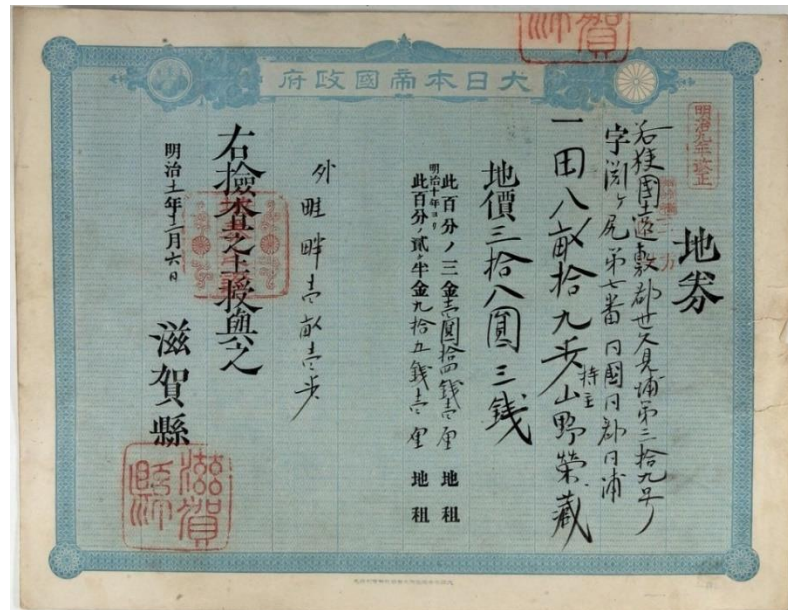 大日本帝國政府
明治九年改正
地券
若狹國遠敷郡世久見浦第三拾九号ノ
字渕ヶ尻第七番 同國同郡同浦
一田八畝拾九歩 持主 山野榮藏
地價三拾八圓三錢
此百分ノ三金壱圓拾四錢壱厘 地租
明治十年ヨリ
此百分ノ貳ヶ半金九拾五錢壱厘 地租
外畦畔壱畝壱歩
右檢査之上授與之
明治十一年十二月六日
滋賀縣
滋賀縣印